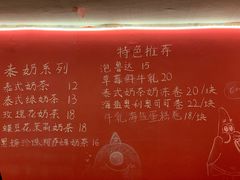 泰奶系列
泰式奶茶 12
泰式绿奶茶 13
玫瑰花奶茶 18
蝶豆花茉莉奶茶 18
黑糖珍珠椰奶绿奶茶 16
特色推荐
泡鲁达 15
草莓鲜牛乳 20
泰式奶茶奶沫卷 20/块
海盐奥利奥可可卷 22/块
牛乳海盐蛋糕 18/块